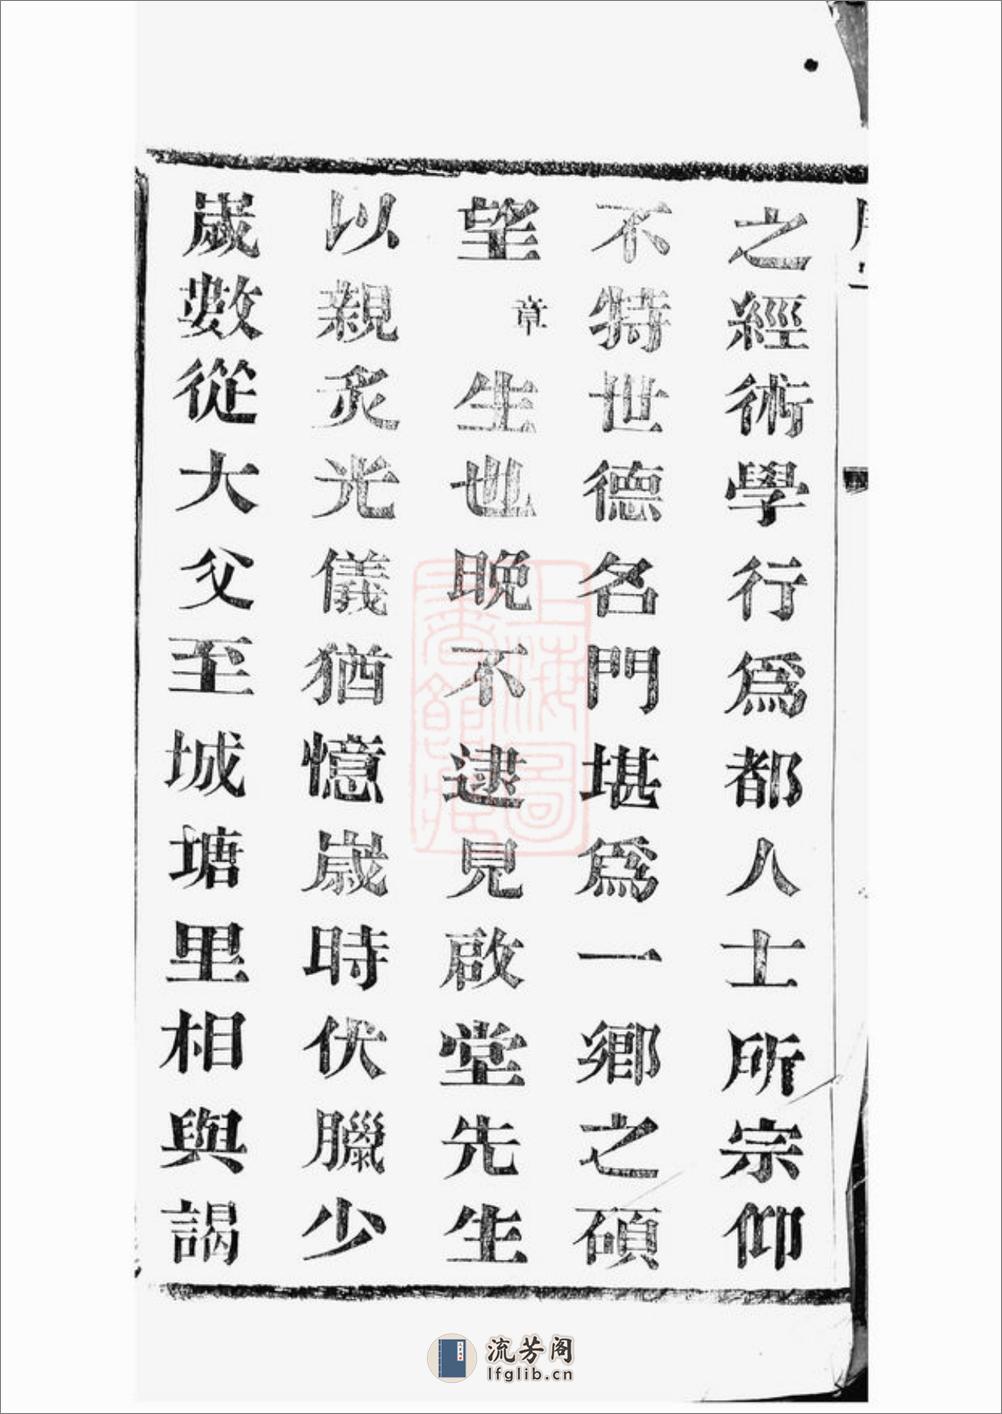 之經術學行爲都人士所宗仰
不特世德名門堪爲一鄉之碩
望章生也晚不逮見啟堂先生
以親炙光儀猶憶歲時伏臘少
歲數從大父至城塘里相與謁
上海圖書館藏
流芳阁
lfglib.cn